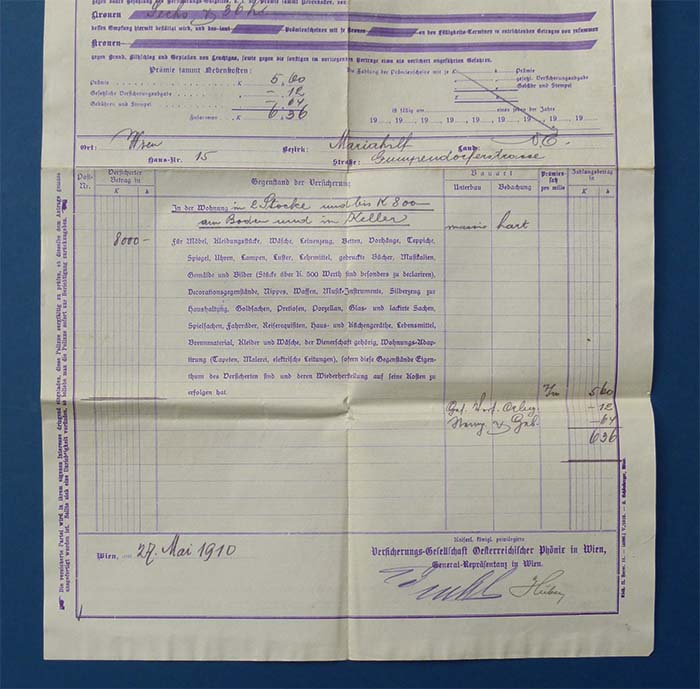 Kronen Sechs & 36 h
dessen Empfang hiermit bestätigt wird, und des-samt Prämienscheinen mit je Kronen an den Fälligkeits-Terminen in entrichtenden Betrages von zusammen
Kronen
gegen Brand, Blitzschlag und Explosion von Leuchtgas, sowie gegen die sonstigen im vorliegenden Vertrage etwa als versichert angeführten Gefahren.
Prämie sammt Nebenkosten:
Die Zahlung der Prämienscheine mit je K Prämie
Prämie K 5.60
gesetzl. Versicherungsabgabe
Gesetzliche Versicherungsabgabe " -.12
Gebühr und Stempel
Gebühren und Stempel " -.64
Zusammen K 6.36
ist fällig am eines jeden Jahre
19 19 19 19 19 19 19 19 19
Ort: Wien Bezirk: Mariahilf Land: N.Ö.
Haus-Nr. 15 Straße: Gumpendorferstrasse
Post-Nr. Versicherter Betrag in K h Gegenstand der Versicherung Bauart Unterbau Bedachung Prämiensatz per mille Zahlungsbetrag in K h
In der Wohnung in 2. Stocke und bis K 800.-
am Boden und in Keller
massiv hart
8000 - Für Möbel, Kleidungsstücke, Wäsche, Leinenzeug, Betten, Vorhänge, Teppiche,
Spiegel, Uhren, Lampen, Luster, Lehrmittel, gedruckte Bücher, Musikalien,
Gemälde und Bilder (Stücke über K. 500 Werth sind besonders zu declariren),
Decorationsgegenstände, Nippes, Waffen, Musik-Instrumente, Silberzeug zur
Haushaltung, Goldsachen, Pretiosen, Porzellan, Glas- und lackirte Sachen,
Spielsachen, Fahrräder, Reiserequisiten, Haus- und Küchengeräthe, Lebensmittel,
Brennmaterial, Kleider und Wäsche, der Dienerschaft gehörig, Wohnungs-Adap-
tirung (Tapeten, Malerei, elektrische Leitungen), sofern diese Gegenstände Eigen-
thum des Versicherten sind und deren Wiederherstellung auf seine Kosten zu
erfolgen hat.
5 60
- 12
& Geb. - 64
6 36
Wien, am 27. Mai 1910
Kaiserl. königl. privilegirte
Versicherungs-Gesellschaft Oesterreichischer Phönix in Wien,
General-Repräsentanz in Wien.
Huber
Die versicherte Partei wird in ihrem eigenen Interesse dringend eingeladen, diese Polizze sorgfältig zu prüfen, ob dieselbe dem Antrage genau
ausgefertigt worden ist. Sollte sich eine Unrichtigkeit vorfinden, so beliebe man die Polizze sofort zur Berichtigung zurückzugeben.